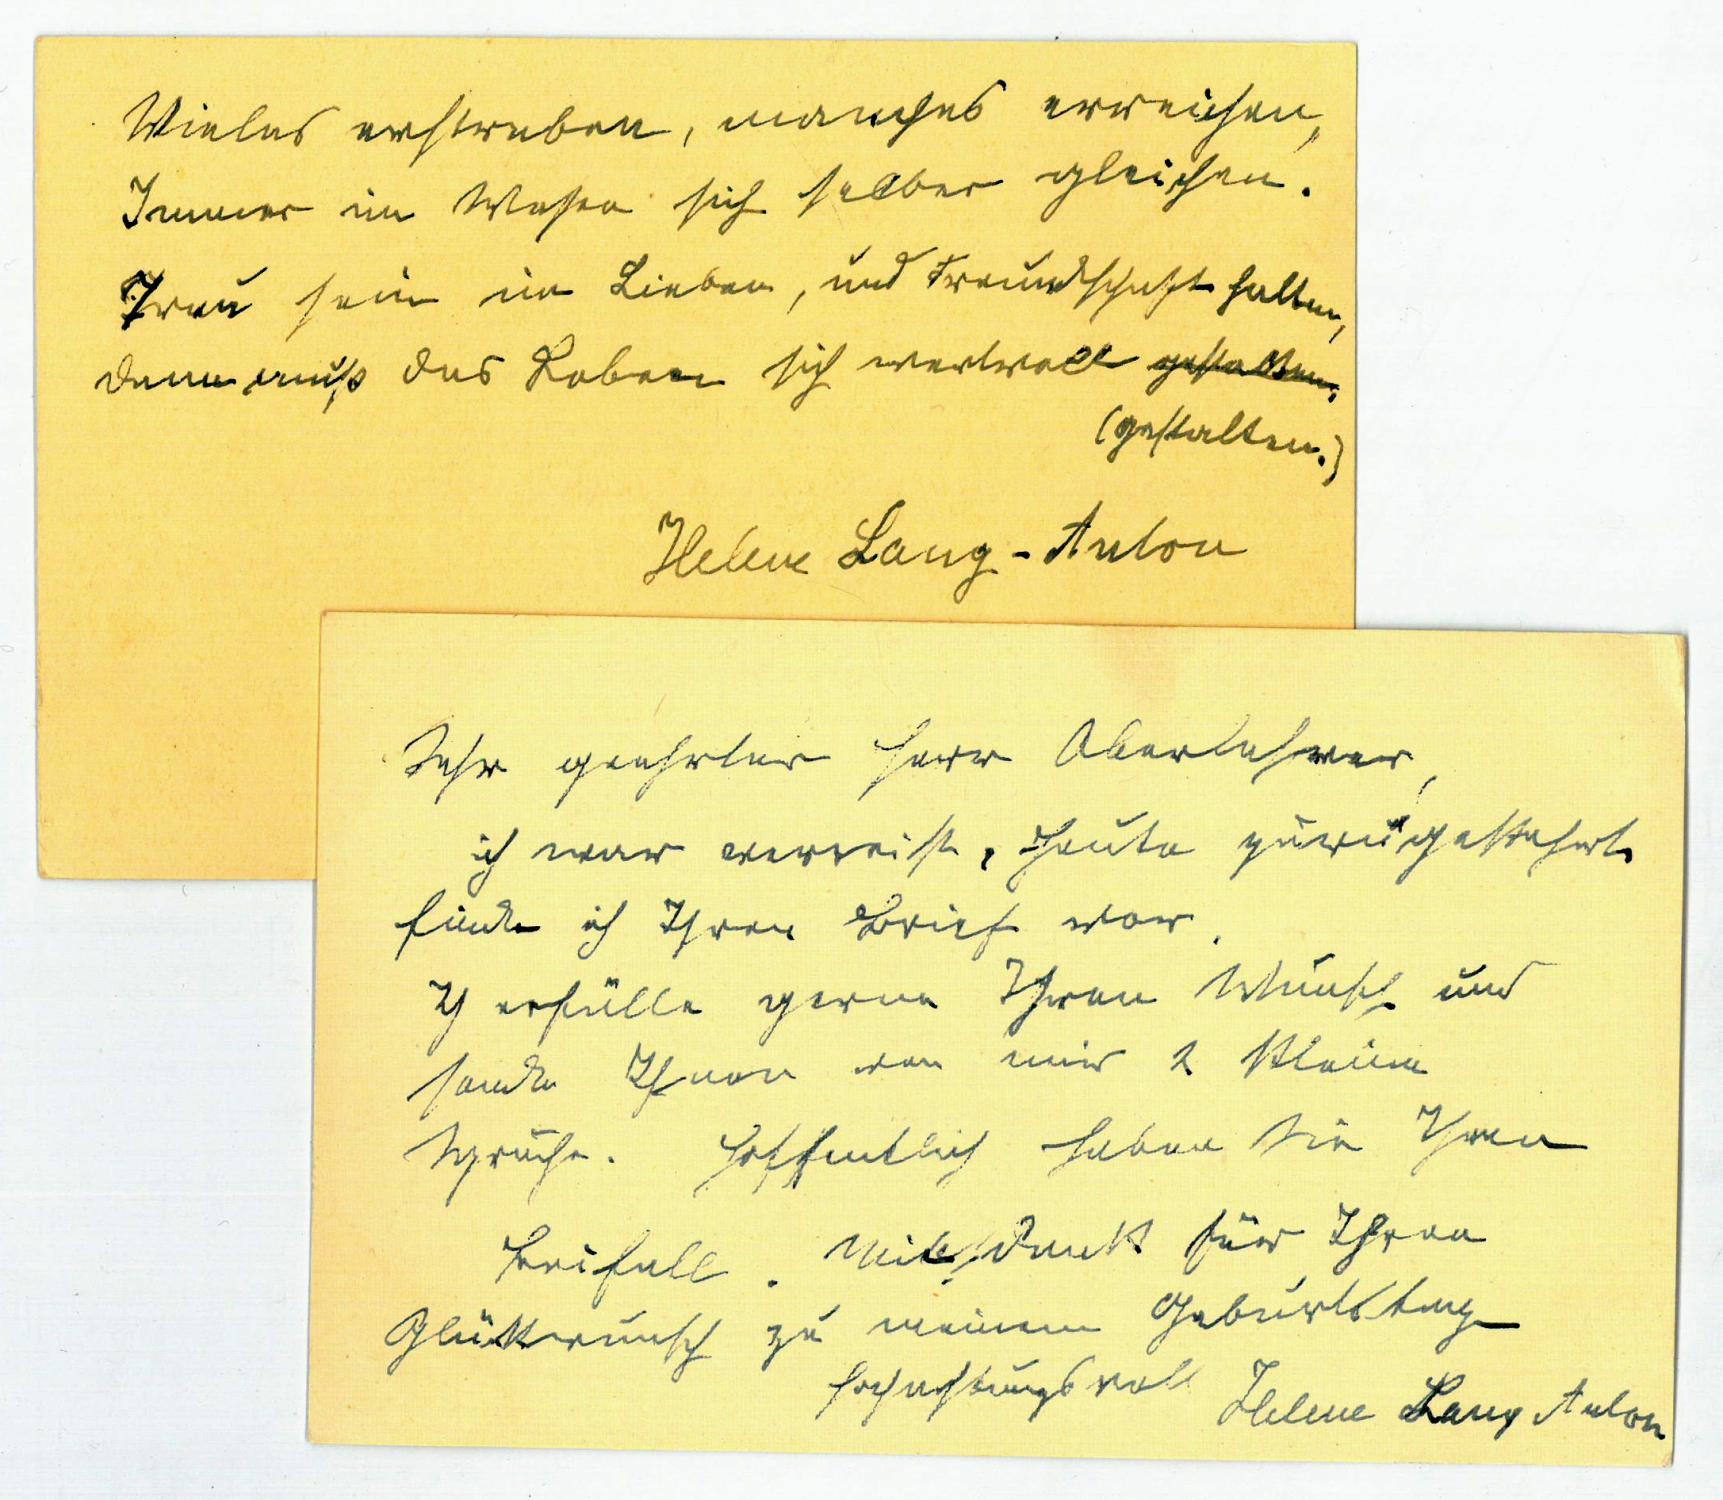 Vieles erstreben, manches erreichen,
Immer im Wesen sich selber gleichen.
Treu sein im Lieben, und Freundschaft halten,
dann muß das Leben sich wertvoll gestalten.
(gestalten.)
Helene Lang-Anton
Sehr geehrter Herr Oberlehrer,
ich war verreist, heute zurückgekehrt
finde ich Ihren Brief vor.
Ich erfülle gerne Ihren Wunsch und
sende Ihnen von mir 2 kleine
Sprüche. Hoffentlich haben Sie Ihren
Beifall. Mit Dank für Ihren
Glückwunsch zu meinem Geburtstag
hochachtungsvoll Helene Lang Anton